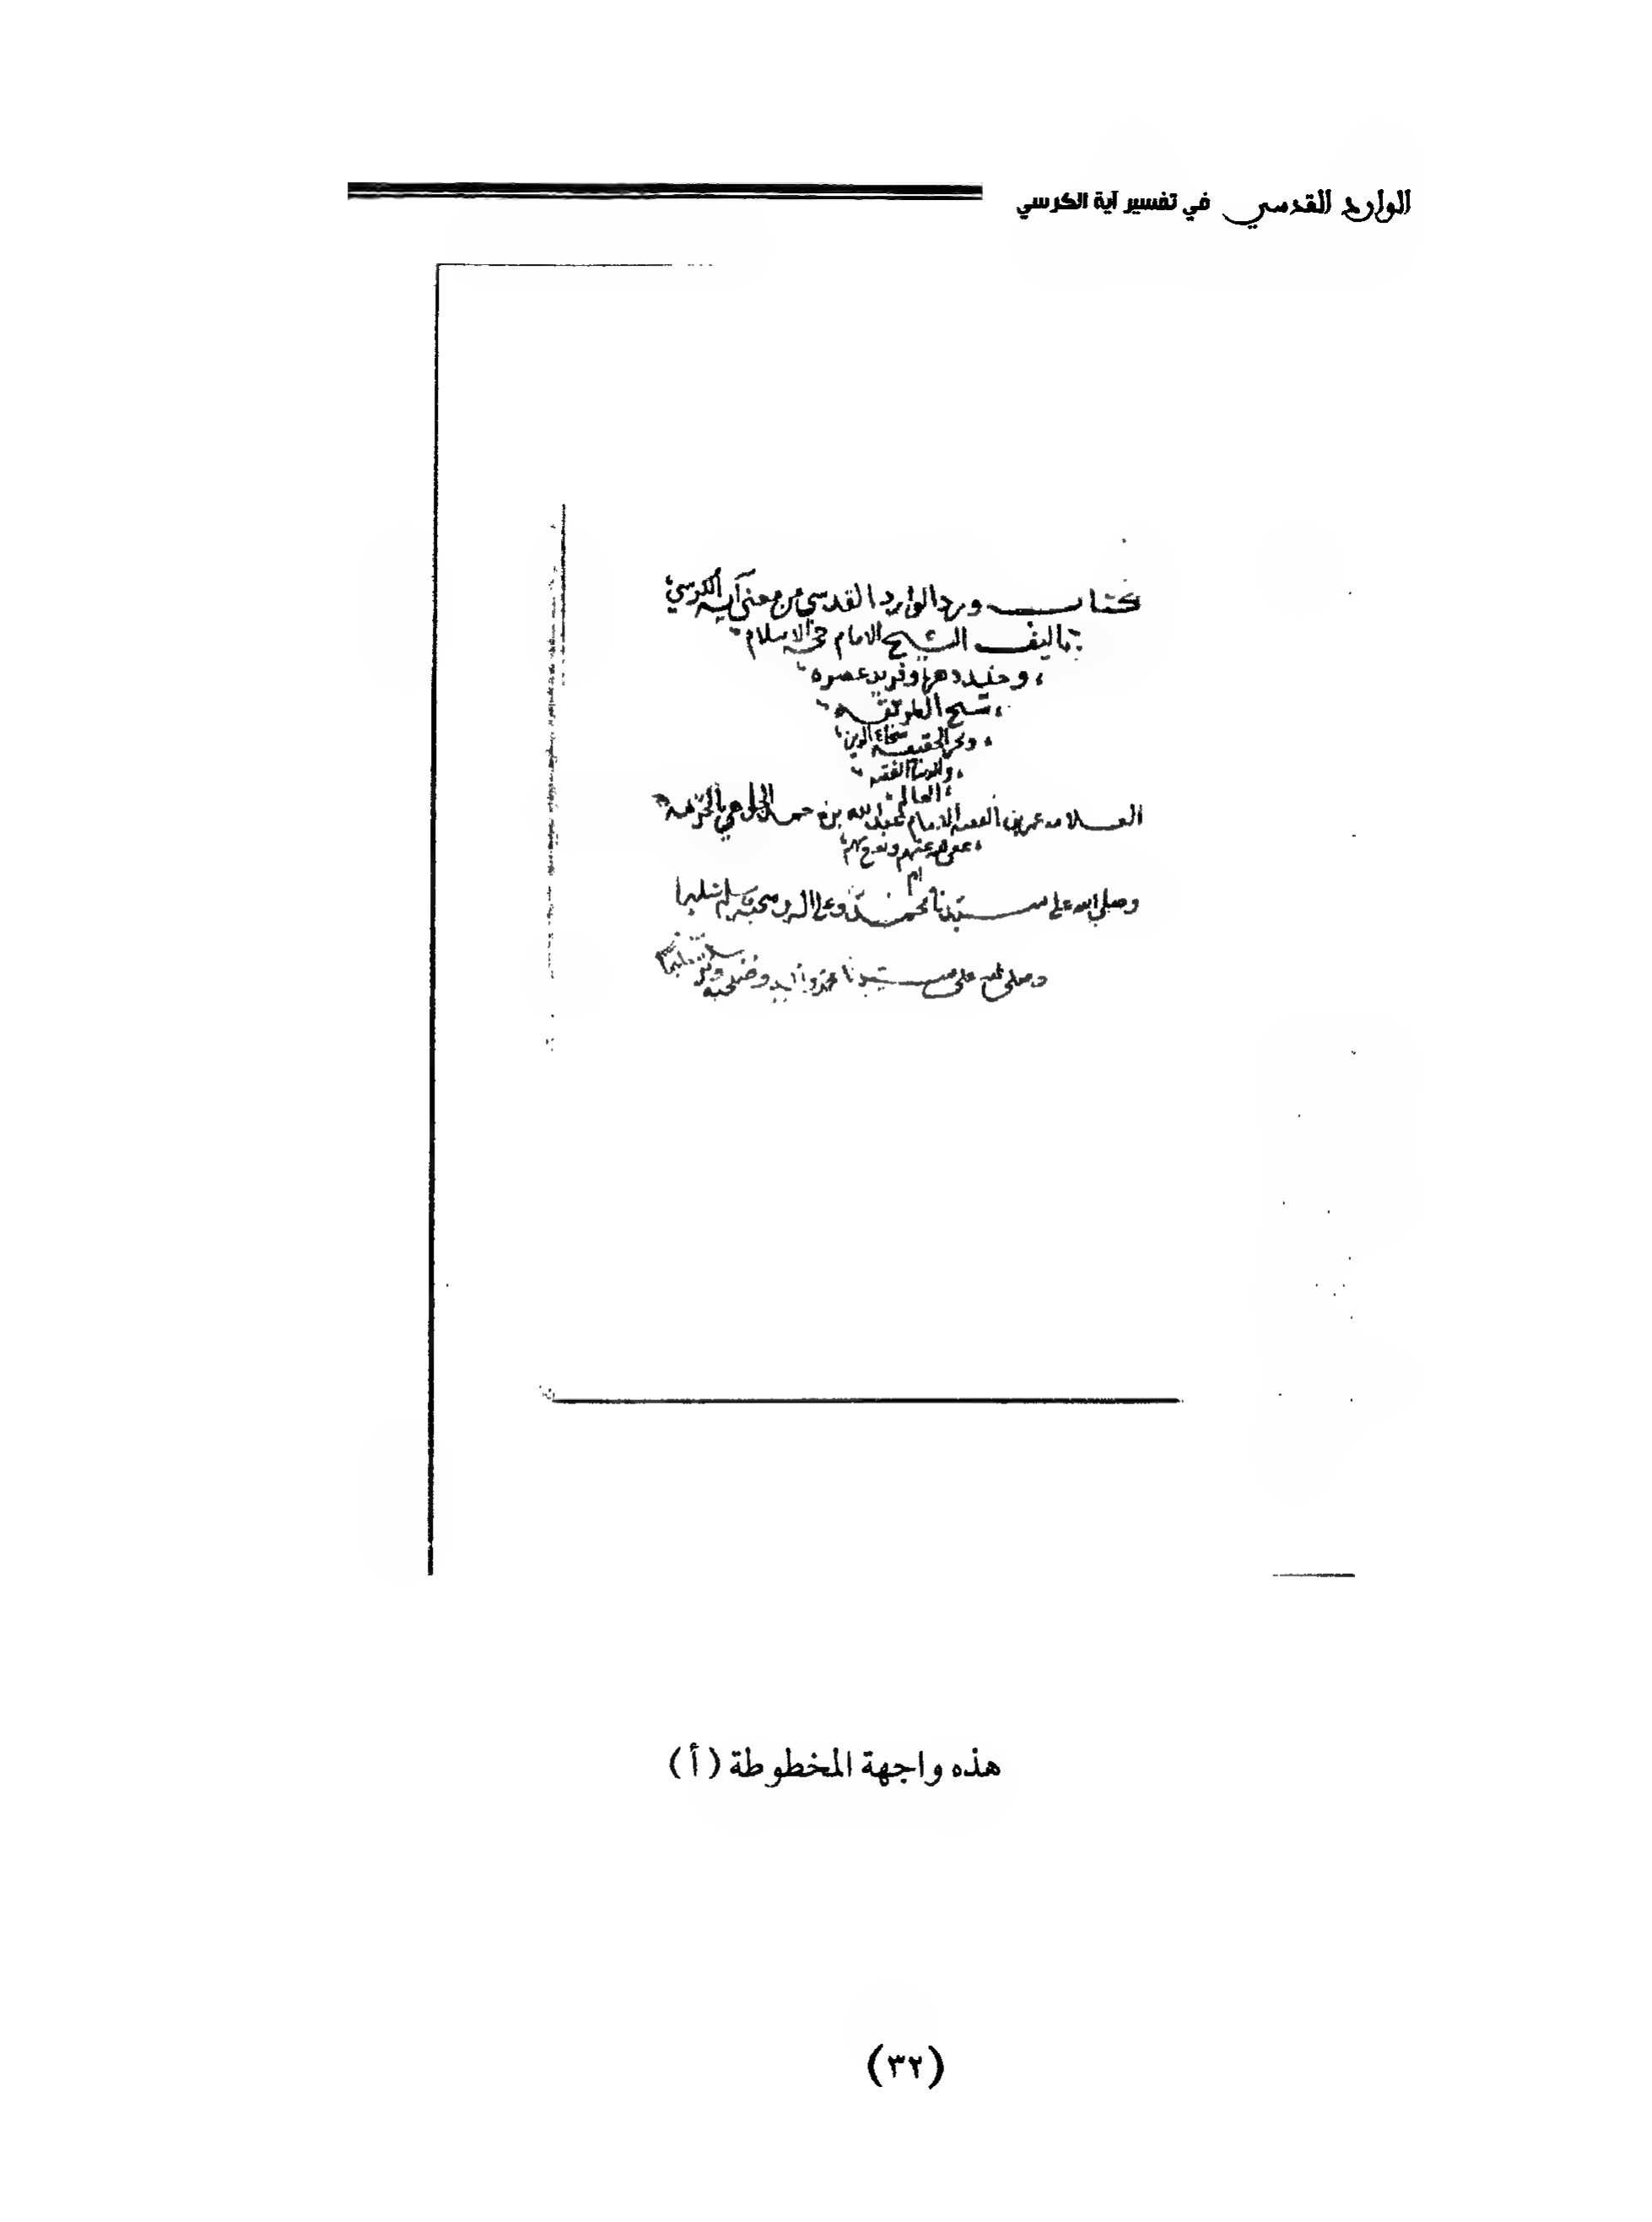 الوارد القدسي في تفسير آية الكرسي
كتاب ورد الوارد القدسي من معنى آية الكرسي
تأليف الشيخ الامام حجة الاسلام
وجنيد دهره وفريد عصره
شيخ الطريقه
وبحر الحقيقه الدين
الفقيه
العالم
العلامه عمر بن الفقيه الامام عبد الله بن بامخرمه
عنهم ونفع بهم
وصلى الله على سيدنا محمد وعلى اله وصحبه وسلم تسليما
وصلى الله على سيدنا محمد وصحبه
هذه واجهة المخطوطة (أ)
(٣٢)